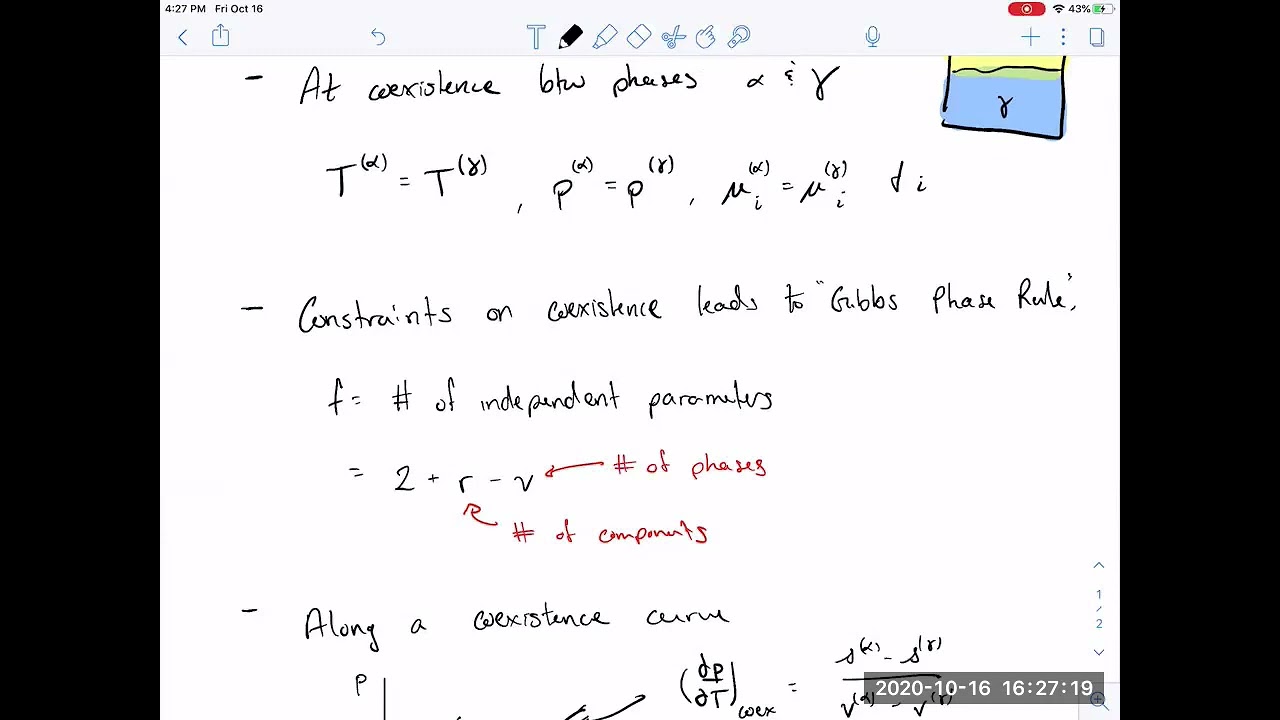 4:27 PM Fri Oct 16
43%
- At coexistence btw phases α & γ
γ
T^(α) = T^(γ) , p^(α) = p^(γ) , μ_i^(α) = μ_i^(γ) ∀ i
- Constraints on coexistence leads to "Gibbs Phase Rule"
f = # of independent parameters
= 2 + r - ν ← # of phases
# of components
- Along a coexistence curve
P
(dP/∂T)_coex = s^(α) - s^(γ) / v^(α) - v^(γ)
1
/
2
2020-10-16 16:27:19